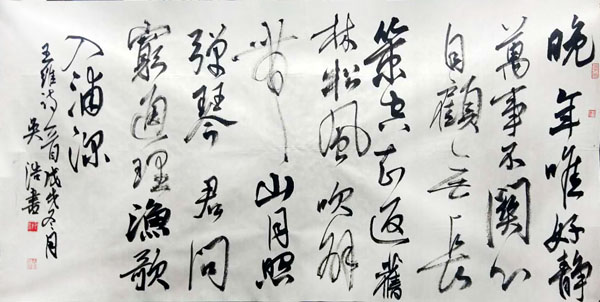 晚年唯好靜
萬事不關心
自顧無長
策空知返舊
林松風吹解
帶山月照
彈琴君問
窮通理漁歌
入浦深
王維詩一首戊戌冬月
吴浩書